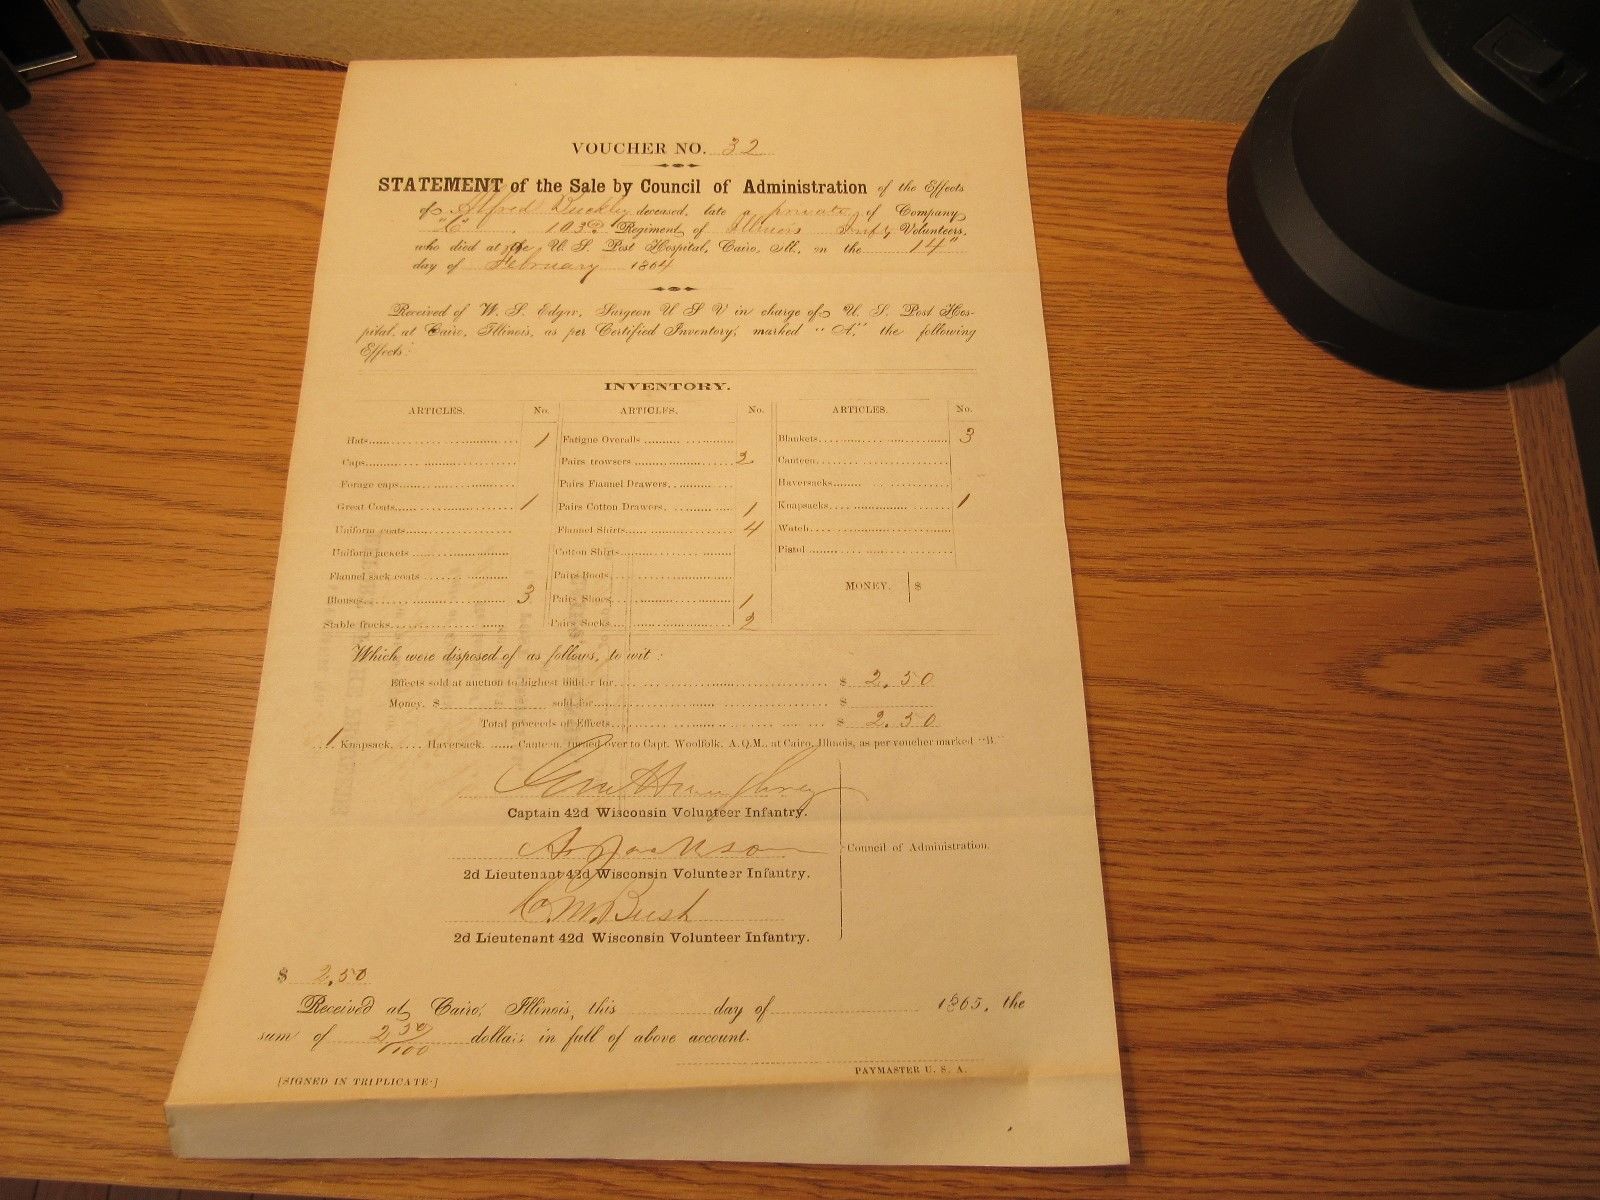 VOUCHER NO. 32
STATEMENT of the Sale by Council of Administration of the Effects
of Alfred Buckley deceased, late a private of Company
"C" 103d Regiment of Illinois Infty Volunteers,
who died at the U. S. Post Hospital, Cairo, Ill. on the 14"
day of February 1864
Received of W. S. Edgar, Surgeon U S V in charge of U. S. Post Hos-
pital, at Cairo, Illinois, as per Certified Inventory, marked "A," the following
Effects:
INVENTORY.
ARTICLES. No. ARTICLES. No. ARTICLES. No.
Hats 1 Fatigue Overalls Blankets 3
Caps Pairs trowsers 2 Canteen
Forage caps Pairs Flannel Drawers Haversacks
Great Coats 1 Pairs Cotton Drawers 1 Knapsacks 1
Uniform coats Flannel Shirts 4 Watch
Uniform jackets Cotton Shirts Pistol
Flannel sack coats Pairs Boots MONEY. $
Blouses 3 Pairs Shoes 1
Stable frocks Pairs Socks 2
Which were disposed of as follows, to wit:
Effects sold at auction to highest bidder for $ 2.50
Money. $ sold for $
Total proceeds of Effects $ 2.50
1 Knapsack. Haversack. Canteen, turned over to Capt. Woolfolk, A.Q.M., at Cairo, Illinois, as per voucher marked "B."
Geo Humphrey
Captain 42d Wisconsin Volunteer Infantry.
Jackson
2d Lieutenant 42d Wisconsin Volunteer Infantry.
Council of Administration.
C. M. Bush
2d Lieutenant 42d Wisconsin Volunteer Infantry.
$ 2.50
Received at Cairo, Illinois, this day of 1865, the
sum of 2 50/100 dollars in full of above account.
PAYMASTER U. S. A.
[SIGNED IN TRIPLICATE.]